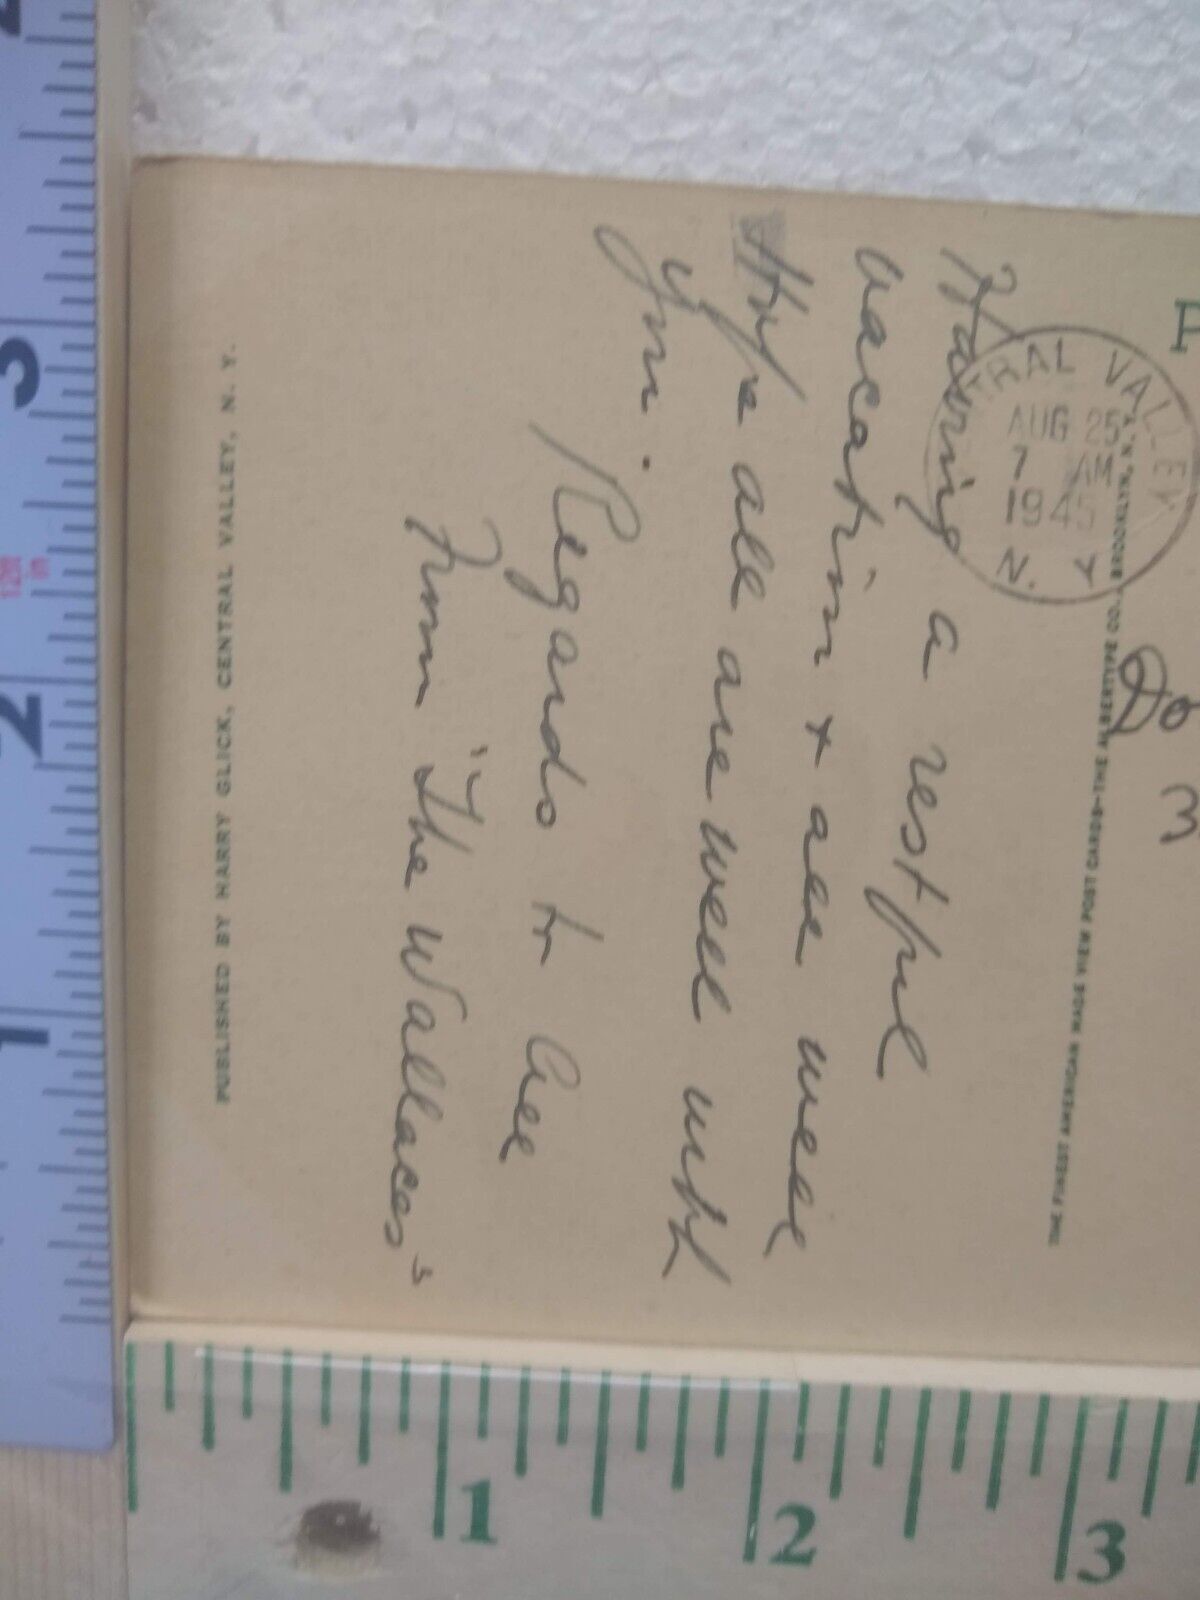 CENTRAL VALLEY
AUG 25
7 AM
1945
N. Y.
Having a restful
vacation + are well
Hope all are well with
you.
Regards to all
From "The Wallaces"
PUBLISHED BY HARRY GLICK, CENTRAL VALLEY, N. Y.
THE FINEST AMERICAN MADE VIEW POST CARDS—THE ALBERTYPE CO., BROOKLYN, N. Y.
1
2
3
1
2
3